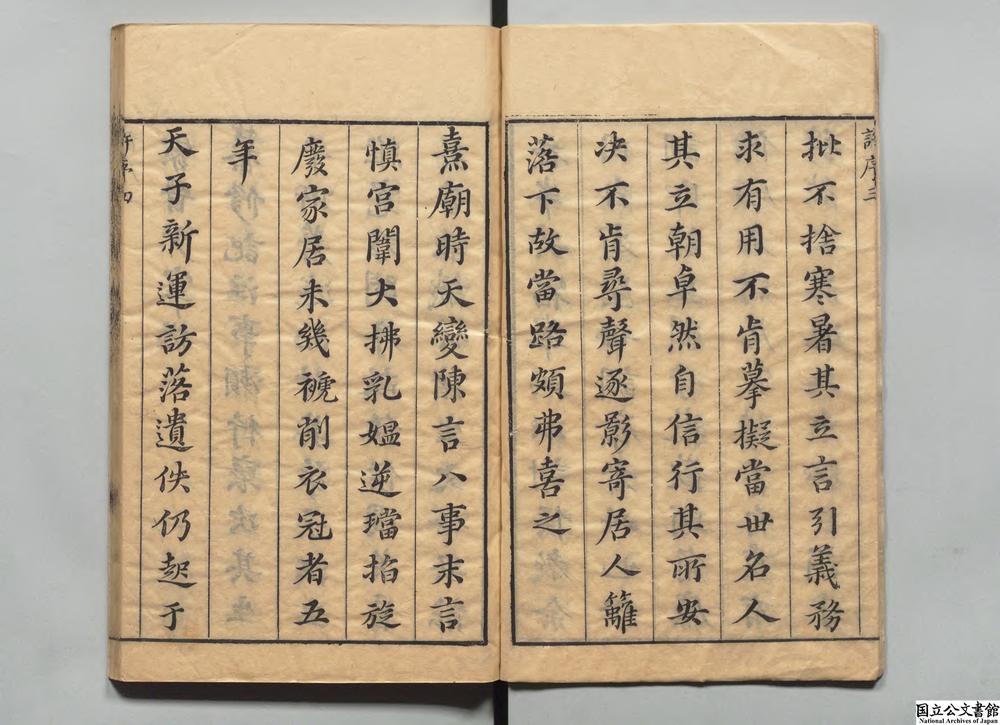 許序三
批不捨寒暑其立言引義務
求有用不肯摹擬當世名人
其立朝卓然自信行其所安
决不肯尋聲逐影寄居人籬
落下故當路頗弗喜之
熹廟時天變陳言八事末言
慎宮闈大拂乳媼逆璫掐旋
廢家居未幾褫削衣冠者五
年
天子新運訪落遺佚仍起于
許序四
国立公文書館
National Archives of Japan